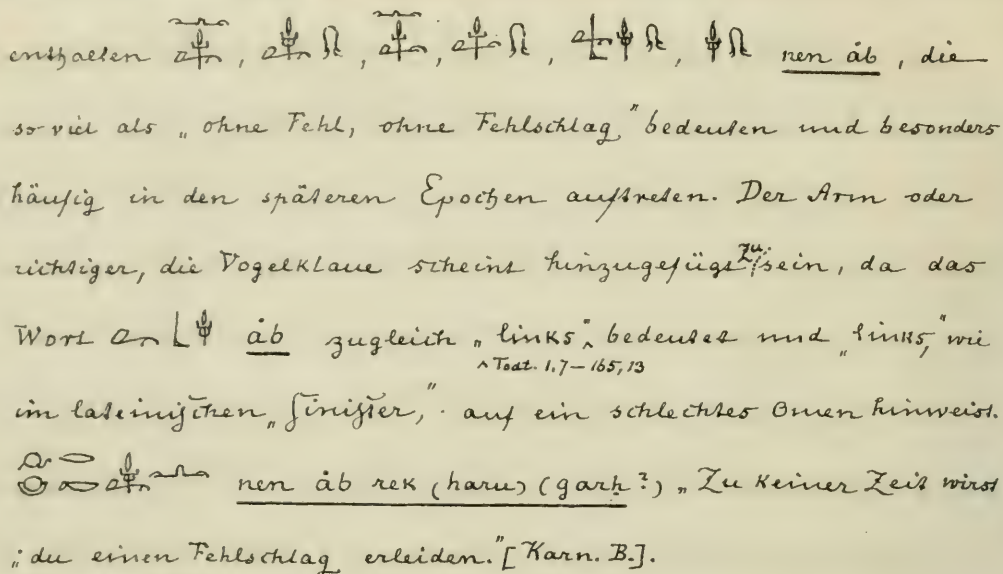 enthalten , , , , , nen áb, die
so viel als „ohne Fehl, ohne Fehlschlag" bedeuten und besonders
häufig in den späteren Epochen auftreten. Der Arm oder
richtiger, die Vogelklaue scheint hinzugefügt zu sein, da das
Wort áb zugleich „links" bedeutet und „links," wie
^ Todt. 1,7 – 165,13
im lateinischen „sinister," auf ein schlechtes Omen hinweist.
nen áb rek (haru) (garḥ?) „Zu keiner Zeit wirst
„du einen Fehlschlag erleiden." [Karn. B.].